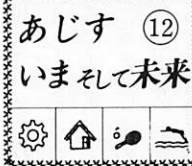 あじす ⑫
いまそして未来